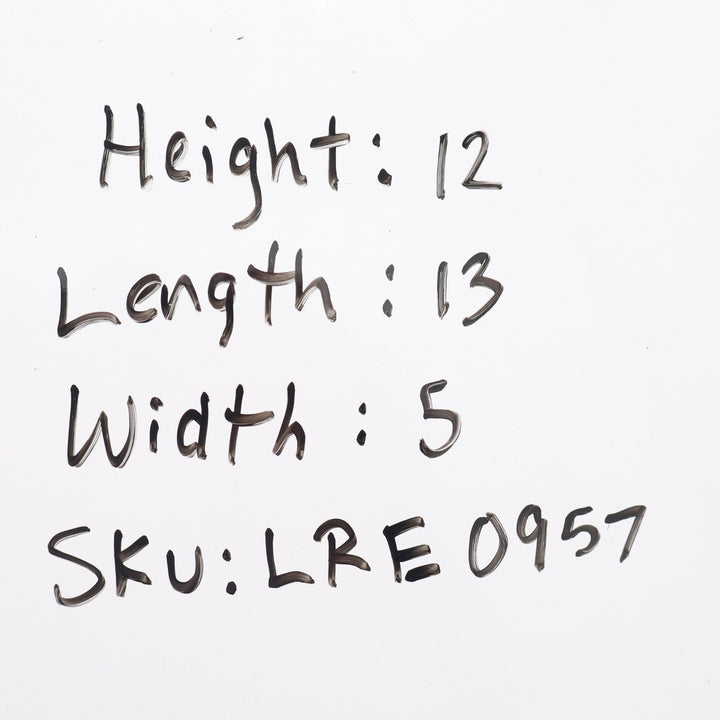 Height: 12
Length : 13
Width : 5
SKU: LRE 0957